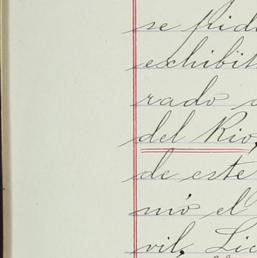 se pide
exhibit
rado
del Rio,
de este
mó el
vil, Lic